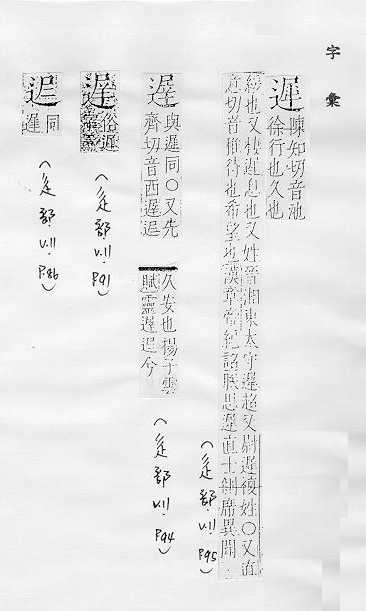 字彙
遲
陳知切音池
徐行也久也
緩也又棲遲息也又姓晉湘東太守遲超又尉遲複姓〇又直
意切音稚待也希望也漢章帝紀詔朕思遲直士側席異聞
(辵部.V.11.P95)
遟
與遲同〇又先
齊切音西遟迡
久安也楊子雲
賦靈遟迡兮
(辵部.V.11.P94)
俗遲
(辵部.V.11.P91)
迡
同
遲
(辵部.V.11.P86)